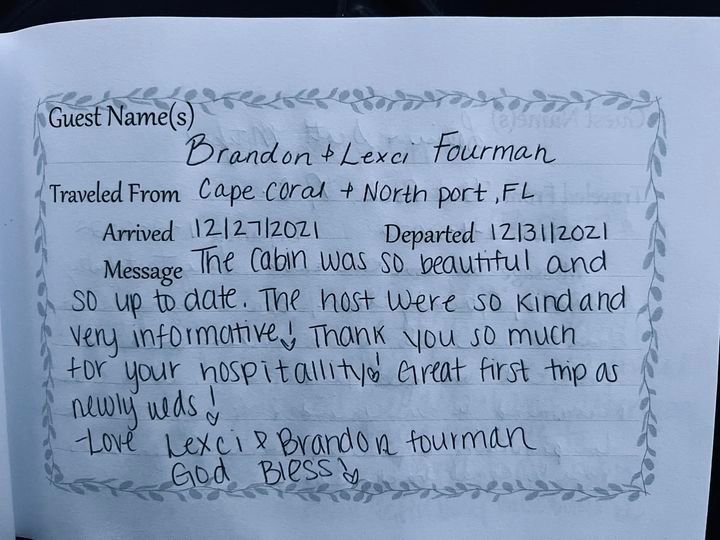 Guest Name(s)
Brandon & Lexci Fourman
Traveled From Cape Coral + North port, FL
Arrived 12/27/2021 Departed 12/31/2021
Message The Cabin was so beautiful and
so up to date. The host were so kind and
very informative! Thank you so much
for your hospitallity! Great first trip as
newly weds!
-Love Lexci & Brandon fourman
God Bless!